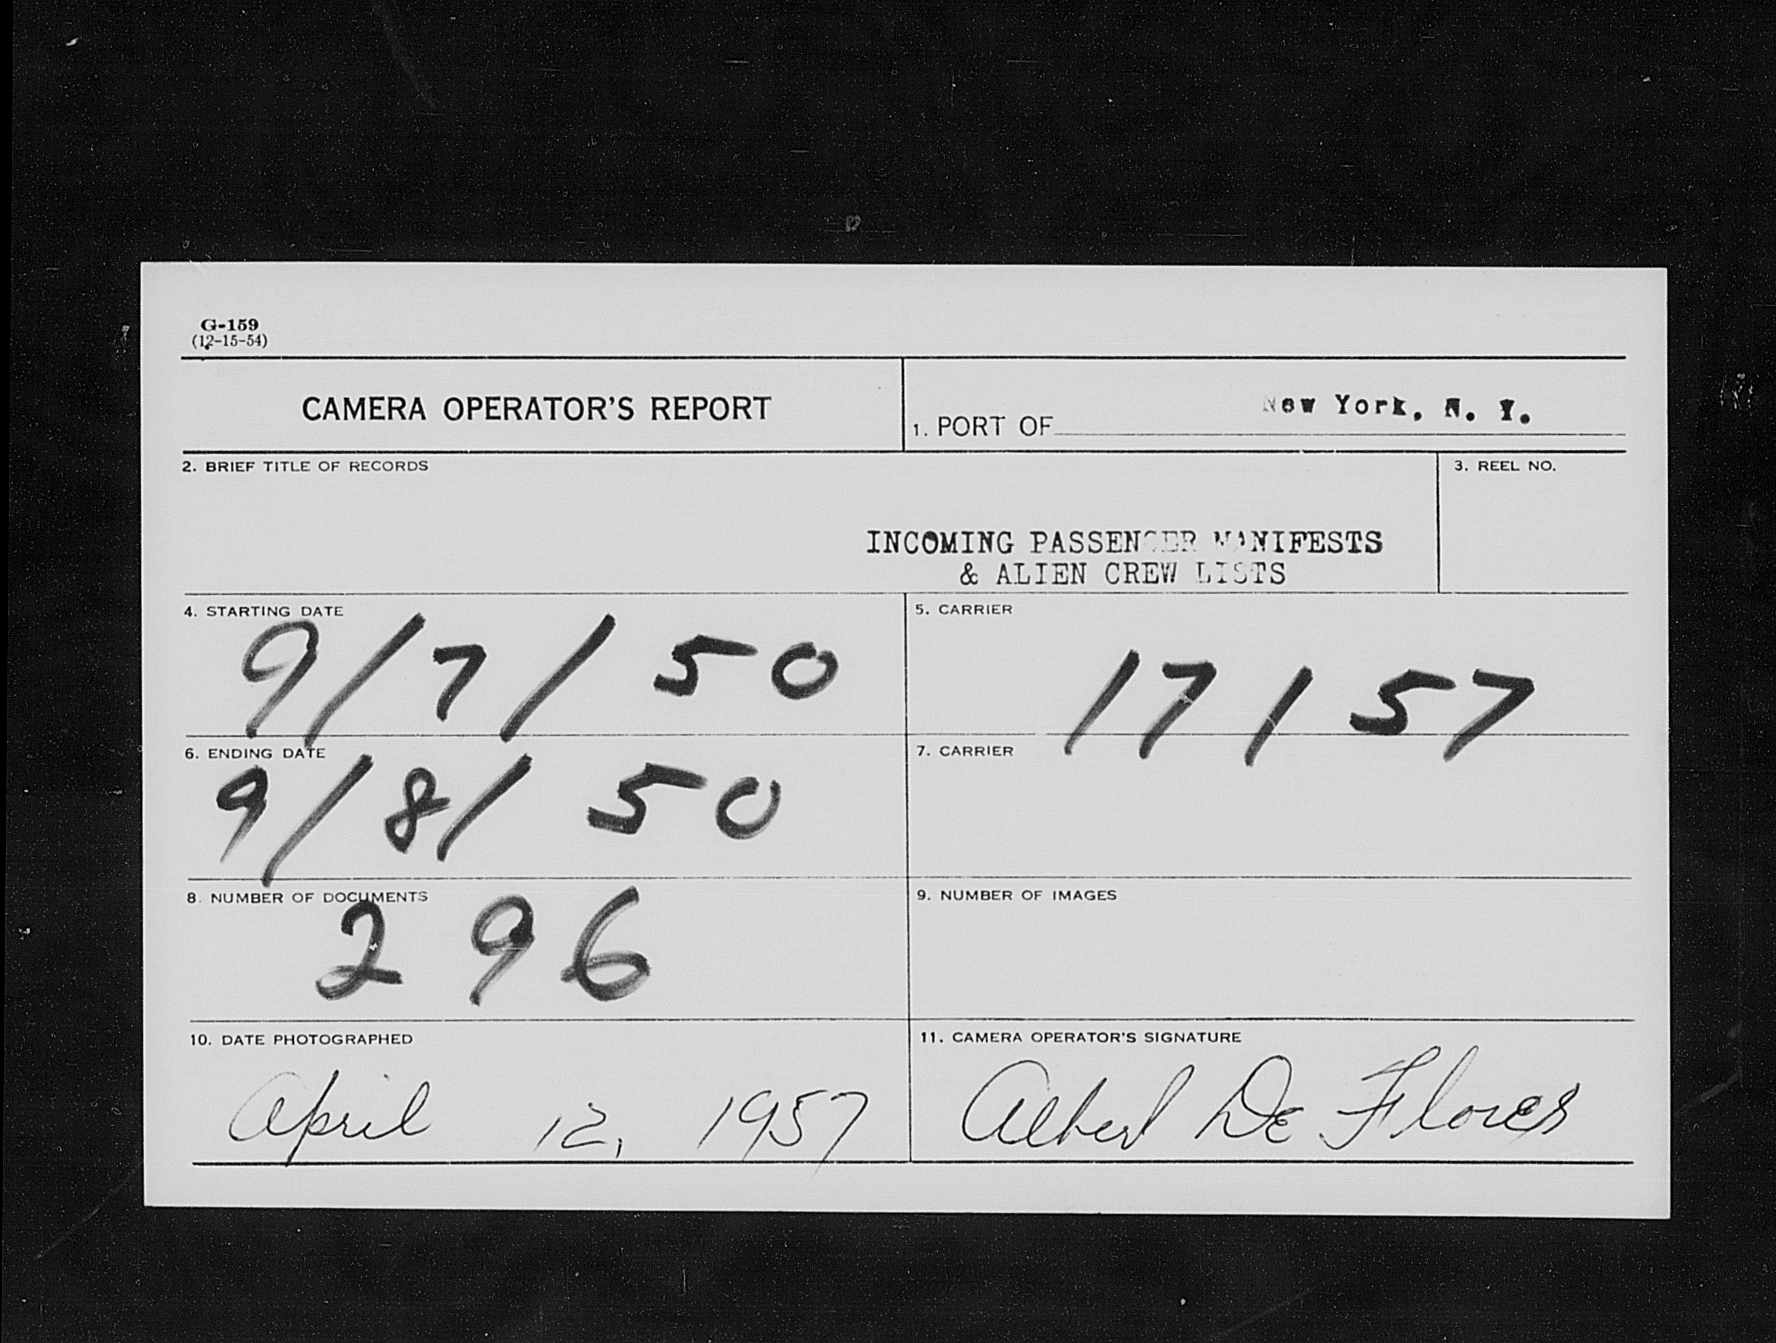 G-159
(12-15-54)
CAMERA OPERATOR'S REPORT
1. PORT OF New York, N. Y.
2. BRIEF TITLE OF RECORDS
3. REEL NO.
INCOMING PASSENGER MANIFESTS
& ALIEN CREW LISTS
4. STARTING DATE
9/7/50
5. CARRIER
17157
6. ENDING DATE
9/8/50
7. CARRIER
8. NUMBER OF DOCUMENTS
296
9. NUMBER OF IMAGES
10. DATE PHOTOGRAPHED
April 12, 1957
11. CAMERA OPERATOR'S SIGNATURE
Albert De Flores